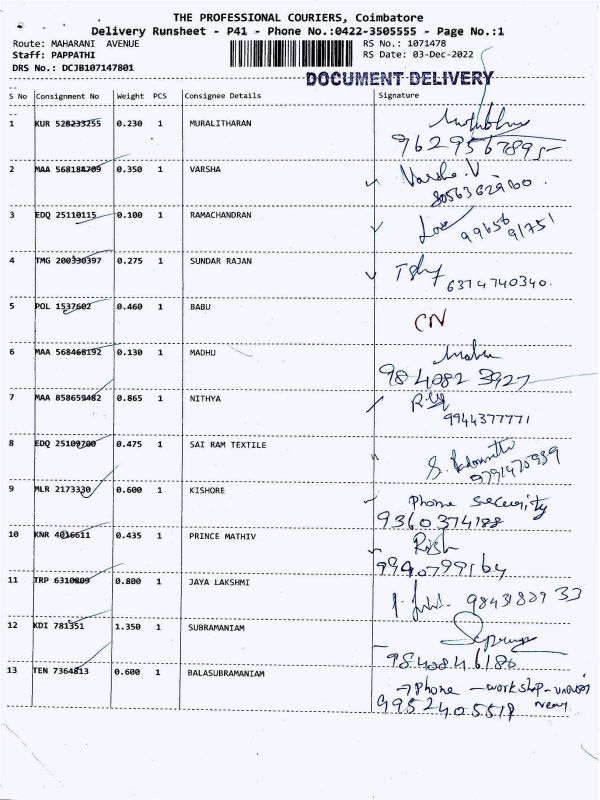 THE PROFESSIONAL COURIERS, Coimbatore
Delivery Runsheet - P41 - Phone No.:0422-3505555 - Page No.:1
Route: MAHARANI AVENUE RS No.: 1071478
Staff: PAPPATHI RS Date: 03-Dec-2022
DRS No.: DCJB107147801
DOCUMENT DELIVERY
S No Consignment No Weight PCS Consignee Details Signature
1 KUR 528233255 0.230 1 MURALITHARAN
9629567895
2 MAA 568184709 0.350 1 VARSHA Varsha.V
3 EDQ 25110115 0.100 1 RAMACHANDRAN
99656 91751
4 TMG 200330397 0.275 1 SUNDAR RAJAN
6374740340.
5 POL 1537602 0.460 1 BABU
CN
6 MAA 568468192 0.130 1 MADHU
984082 3927
7 MAA 858659482 0.865 1 NITHYA
9944377771
8 EDQ 25109700 0.475 1 SAI RAM TEXTILE
9791475939
9 MLR 2173330 0.600 1 KISHORE Phone security
9360374188
10 KNR 4016611 0.435 1 PRINCE MATHIV
9940799164
11 TRP 6310809 0.800 1 JAYA LAKSHMI
12 KDI 781351 1.350 1 SUBRAMANIAM
9840846186
13 TEN 7364813 0.600 1 BALASUBRAMANIAM
→ Phone - workshop -
9952405518